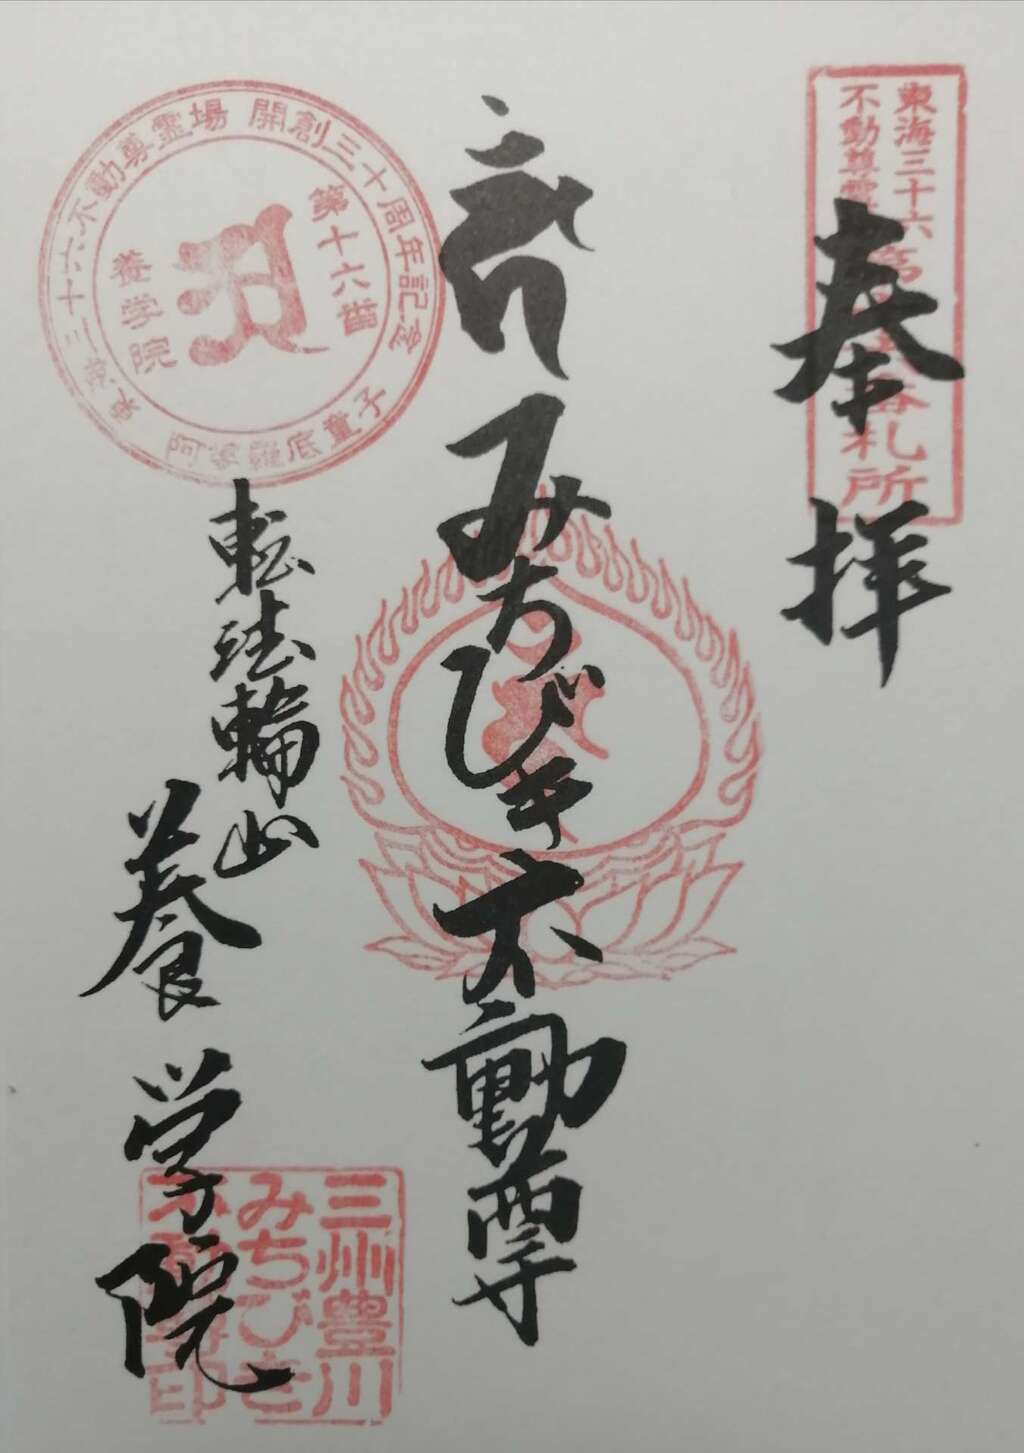 東海三十六
不動尊霊
札所
奉拝
みちびき不動尊
東海三十六不動尊霊場 開創三十周年記念
第十六番
養学院
阿婆羅底童子
転法輪山
養学院
三州豊川
みちびき
不動尊印